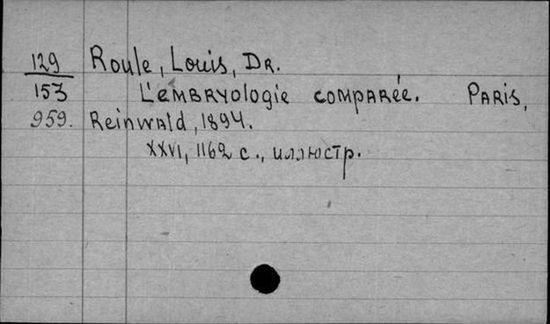 129 Roule, Louis, Dr.
153 L'embryologie comparée. Paris,
959. Reinwald, 1894.
XXVI, 1162 с., иллюстр.